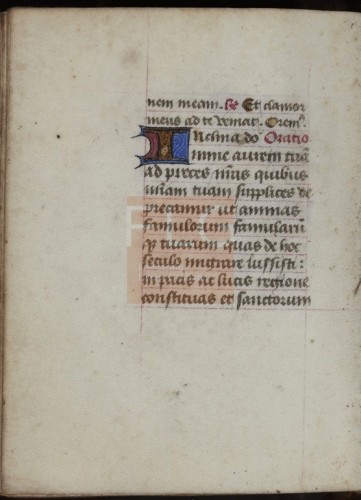 nem meam. R Et clamor
meus ad te veniat. Orem9.
Inclina do Oratio
mine aurem tuā
ad preces nr̄as quibus
miām tuam supplices de
precamur ut animas
famulorum famularū
q3 tuarum quas de hoc
seculo migrare iussisti :
in pacis ac lucis regione
constituas et sanctorum